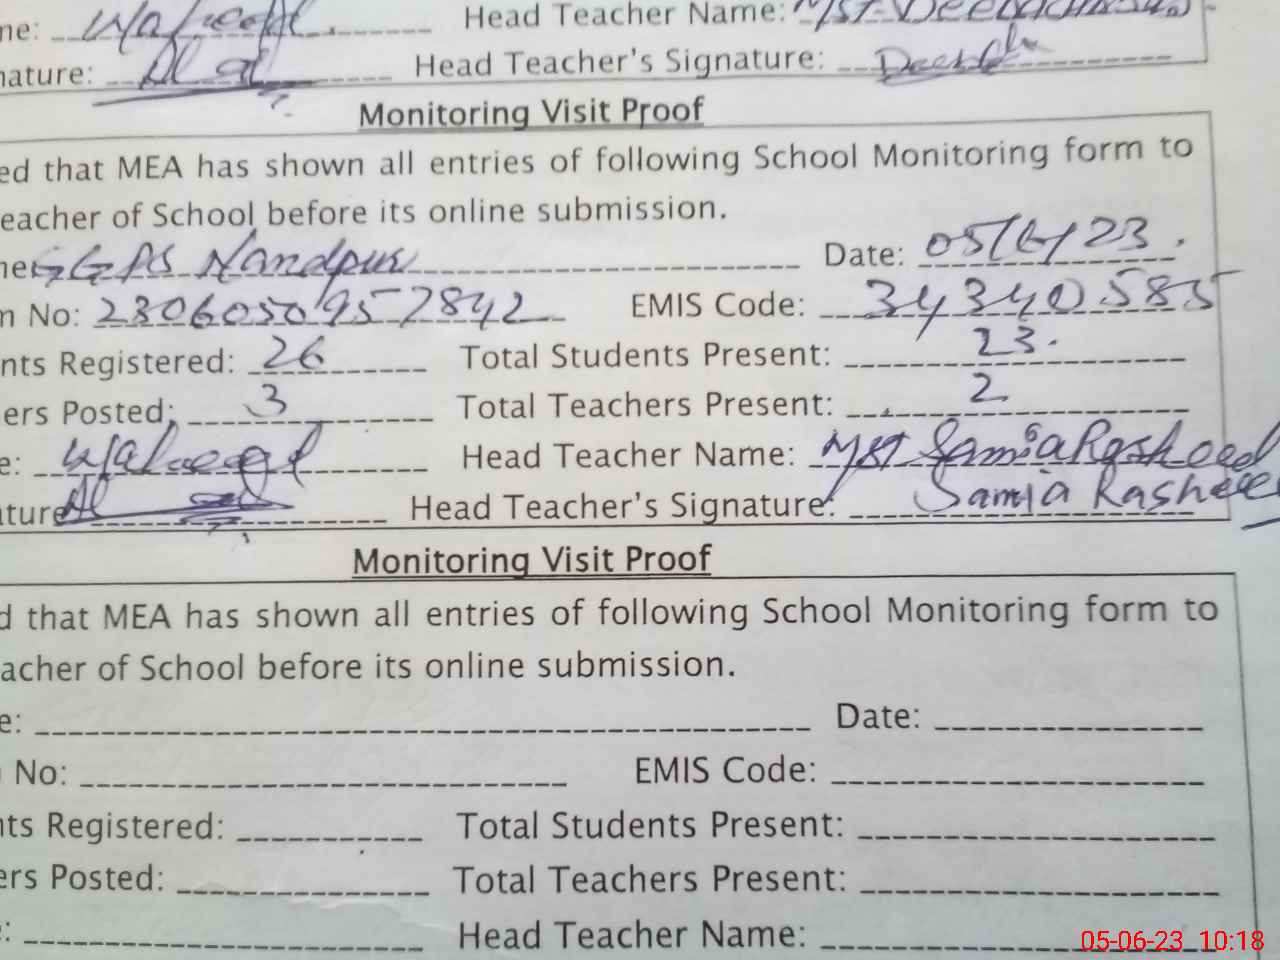 ne: Waheed Head Teacher Name: Mst.
nature: Head Teacher's Signature:
Monitoring Visit Proof
ed that MEA has shown all entries of following School Monitoring form to
eacher of School before its online submission.
ne: GGPS Nandpur Date: 05/6/23.
n No: 2306050957842 EMIS Code: 34340585
nts Registered: 26 Total Students Present: 23.
ers Posted: 3 Total Teachers Present: 2
e: Waheed Head Teacher Name: Mst Samia Rasheed
ature Head Teacher's Signature: Samia Rasheed
Monitoring Visit Proof
d that MEA has shown all entries of following School Monitoring form to
acher of School before its online submission.
e: Date:
No: EMIS Code:
nts Registered: Total Students Present:
ers Posted: Total Teachers Present:
: Head Teacher Name:
05-06-23 10:18